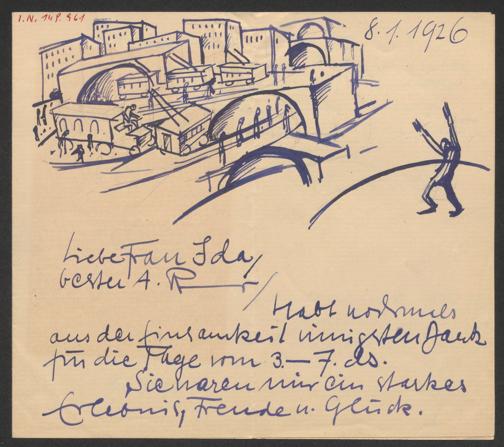 I.N. 149.961
8.1.1926
Liebe Frau Ida,
bester A. R
Habt nochmals
aus der Einsamkeit innigsten Dank
für die Tage vom 3.–7. ds.
Sie waren mir ein starkes
Erlebnis, Freude u. Glück.